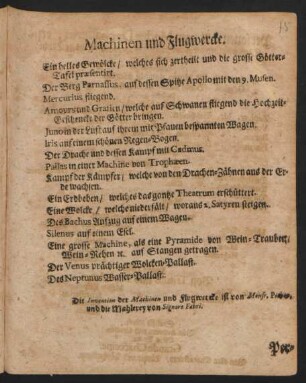 Machinen und Flugwercke.
Ein helles Gewölcke / welches sich zertheilt und die grosse Götter-
Tafel præsentirt.
Der Berg Parnassus, auf dessen Spitze Apollo mit den 9. Musen.
Mercurius fliegend.
Amours und Gratien / welche auf Schwanen fliegend die Hochzeit-
Geschencke der Götter bringen.
Juno in der Luft auf ihrem mit Pfauen bespannten Wagen.
Iris auf einem schönen Regen-Bogen.
Der Drache und dessen Kampf mit Cadmus.
Pallas in einer Machine von Trophæen.
Kampf der Kämpfer / welche von den Drachen-Zähnen aus der Er-
de wachsen.
Ein Erdbeben / welches das gantze Theatrum erschüttert.
Eine Wolcke / welche niederfält / woraus 2. Satyren steigen.
Des Bachus Aufzug auf einem Wagen.
Silenus auf einem Esel.
Eine grosse Machine, als eine Pyramide von Wein-Trauben /
Wein-Reben ꝛc. auf Stangen getragen.
Der Venus prächtiger Wolcken-Pallast.
Des Neptunus Wasser-Pallast.
Die Invention der Machinen und Flugwercke ist von
und die Mahlerey von Signore Fabri.
Per-